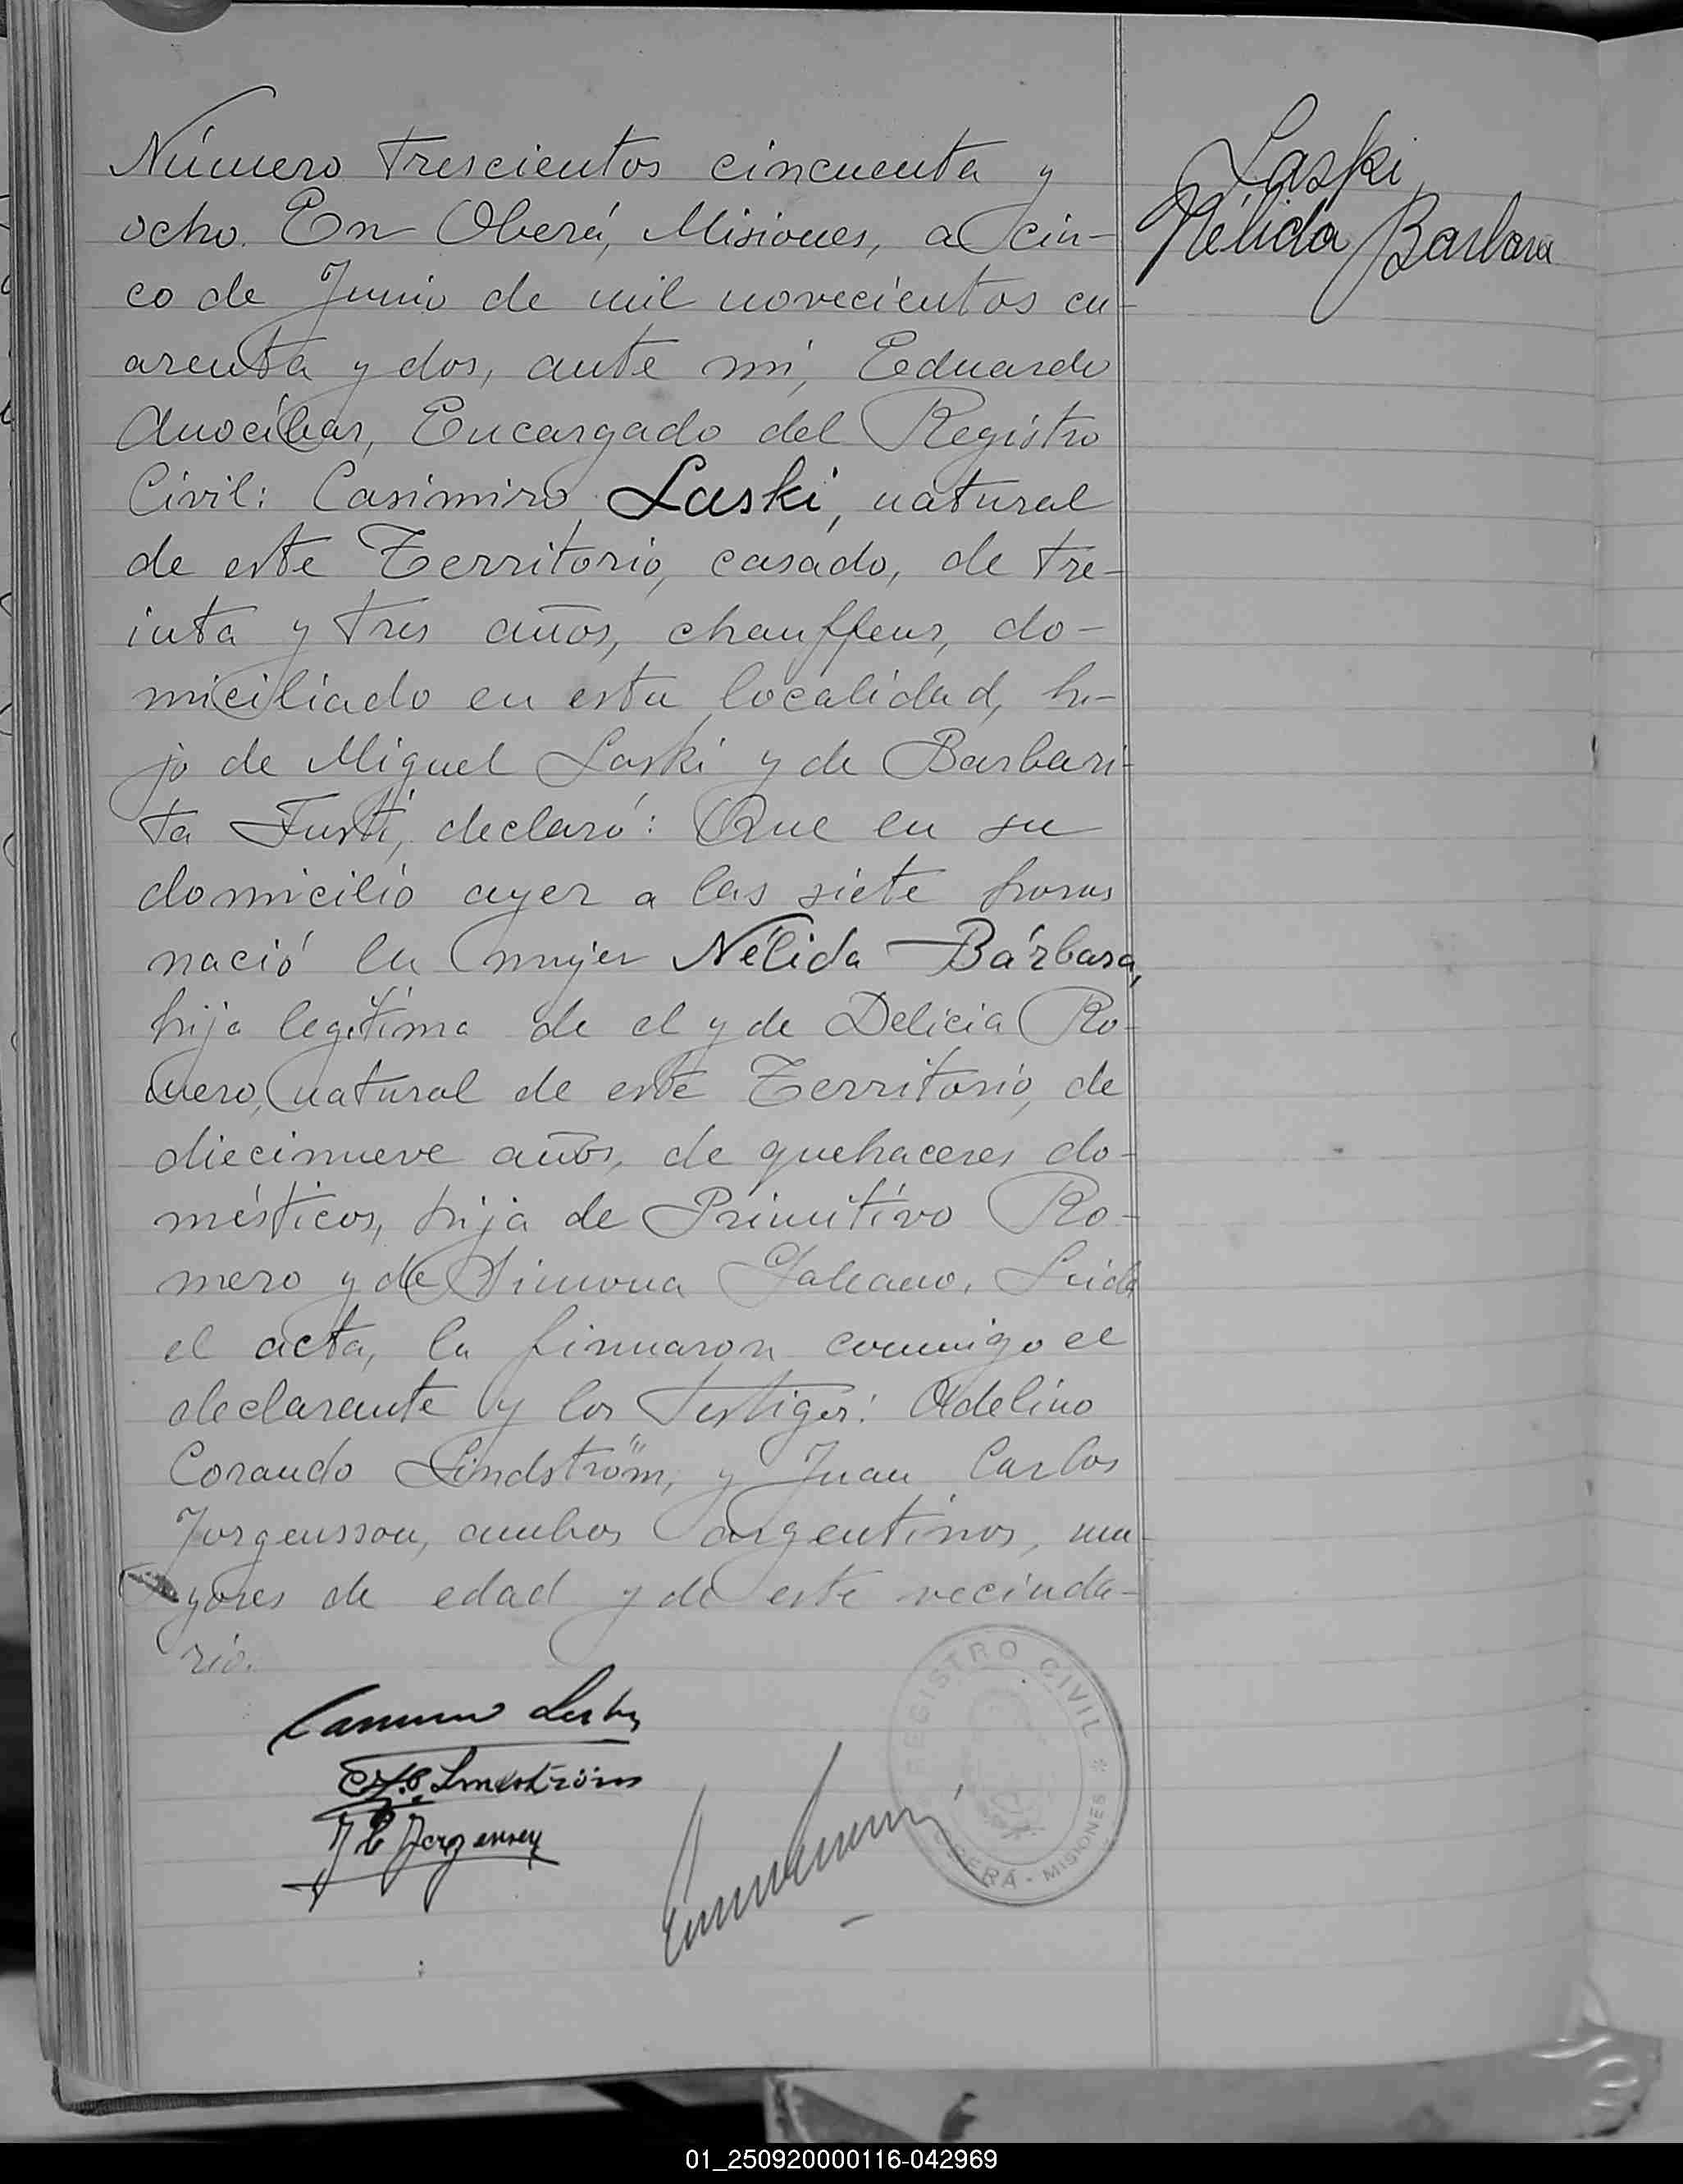 Laski,
Nélida Barbara
Número trescientos cincuenta y
ocho. En Oberá, Misiones, a cin-
co de Junio de mil novecientos cu-
arenta y dos, ante mi, Eduardo
Anocíbar, Encargado del Registro
Civil: Casimiro Laski, natural
de este Territorio, casado, de tre-
inta y tres años, chauffeur, do-
miciliado en esta localidad, hi-
jo de Miguel Laski y de Barbari-
ta Fusti, declaró: Que en su
domicilio ayer a las siete horas
nació la mujer Nélida Bárbara,
hija legítima de el y de Delicia Ro-
mero, natural de este Territorio, de
diecinueve años, de quehaceres do-
mésticos, hija de Primitivo Ro-
mero y de Simona Galeano. Leida
el acta, la firmaron conmigo el
declarante y los testigos: Adelino
Corando Lindström, y Juan Carlos
Jorgensson, ambos argentinos, ma-
yores de edad y de este vecinda-
rio.
Lindström
J C Jorgensen
REGISTRO CIVIL * OBERÁ - MISIONES
01_250920000116-042969